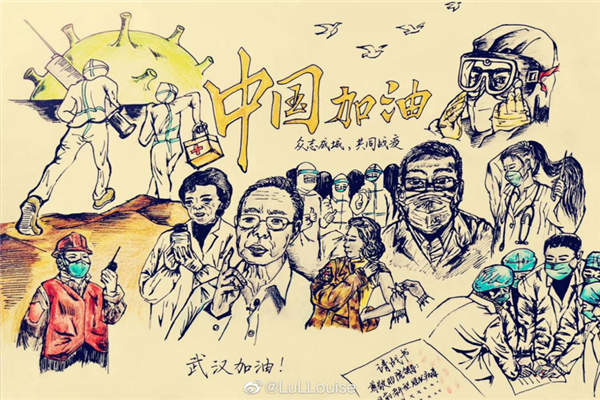 中国加油
众志成城，共同战疫
武汉加油！
请战书
@LuLLouise